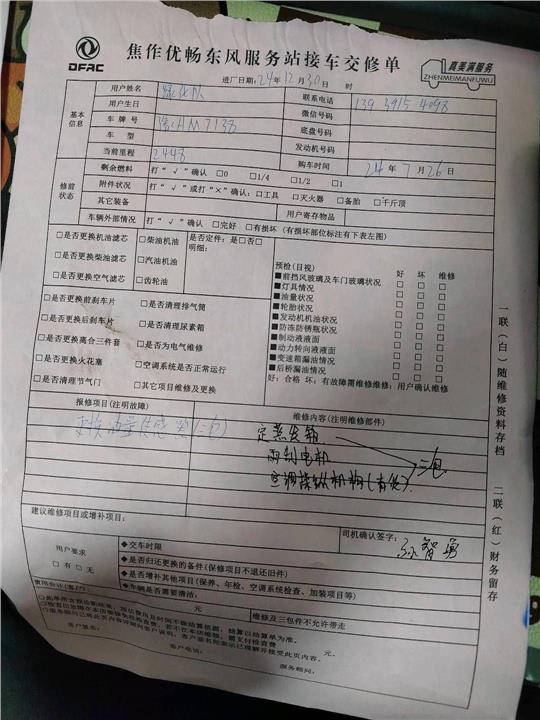 DFAC
焦作优畅东风服务站接车交修单
真美满服务
ZHENMEIMANFUWU
进厂日期：24年12月30日 时
基本信息
用户姓名
联系电话 139 3915 4098
用户生日
微信号码
车牌号 HM7138
底盘号码
车型
发动机号码
当前里程 2448
购车时间 24年7月26日
修前状态
剩余燃料 打“√”确认 □0 □1/4 □1/2 □1
附件状况 打“√”或打“×”确认：□工具 □灭火器 □备胎 □千斤顶
其它装备
用户寄存物品
车辆外部情况 打“√”确认 □完好 □有损坏（有损坏部位标注有下表左图）
□是否更换机油滤芯
□是否更换柴油滤芯
□是否更换空气滤芯
□柴油机油
□汽油机油
□齿轮油
是否定件：是□否□
明细：
□是否更换前刹车片
□是否更换后刹车片
□是否更换离合三件套
□是否更换火花塞
□是否清理节气门
□是否清理排气筒
□是否清理尿素箱
□是否为电气维修
□空调系统是否正常运行
□其它项目维修及更换
预检（目视） 好 坏 维修
■前挡风玻璃及车门玻璃状况 □ □ □
■灯具情况 □ □ □
■油量状况 □ □ □
■轮胎状况 □ □ □
■发动机机油状况 □ □ □
■防冻防锈瓶状况 □ □ □
■制动液液面 □ □ □
■动力转向液液面 □ □ □
■变速箱漏油情况 □ □ □
■后桥漏油情况 □ □ □
好：合格 坏：有故障需维修维修：用户确认维修
报修项目（注明故障）
更换油量传感器（三包）
维修内容（注明维修部件）
定蒸发箱
雨刮电机
空调操纵机构（有货）
三包
建议维修项目或增补项目：
司机确认签字：孙智勇
用户要求
□有 □无
◆交车时限
◆是否归还更换的备件（保修项目不退还旧件）
◆是否增补其他项目（保养、年检、空调系统检查、加装项目等）
◆车辆是否需要清洁：
元
维修及三包件不允许带走
元。
客户签名：
客户电话：
服务顾问：
一联（白）随维修资料存档
二联（红）财务留存